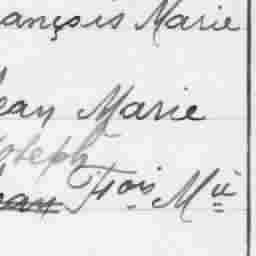 ançois Marie
ean Marie
oseph
Jean Fçois Mie